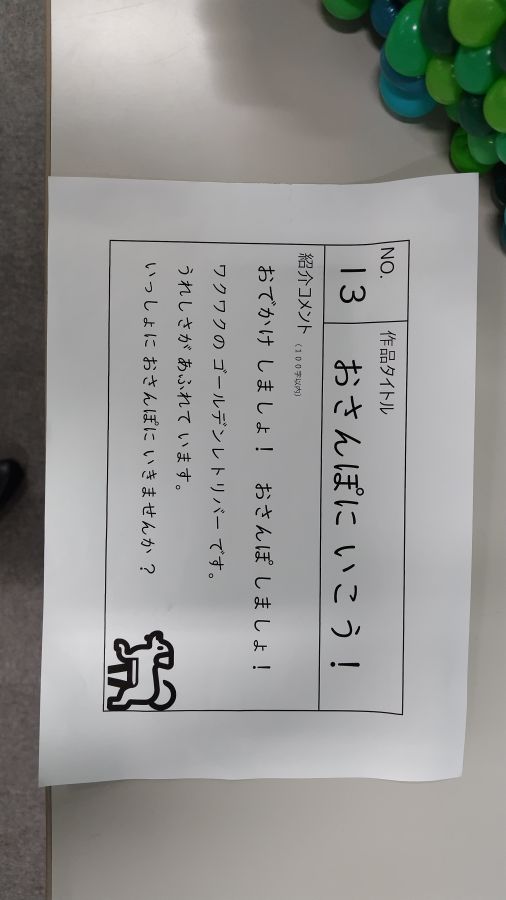 NO.
13
作品タイトル
おさんぽに いこう!
紹介コメント (100字以内)
おでかけ しましょ! おさんぽ しましょ!
ワクワクの ゴールデンレトリバー です。
うれしさが あふれて います。
いっしょに おさんぽに いきませんか?